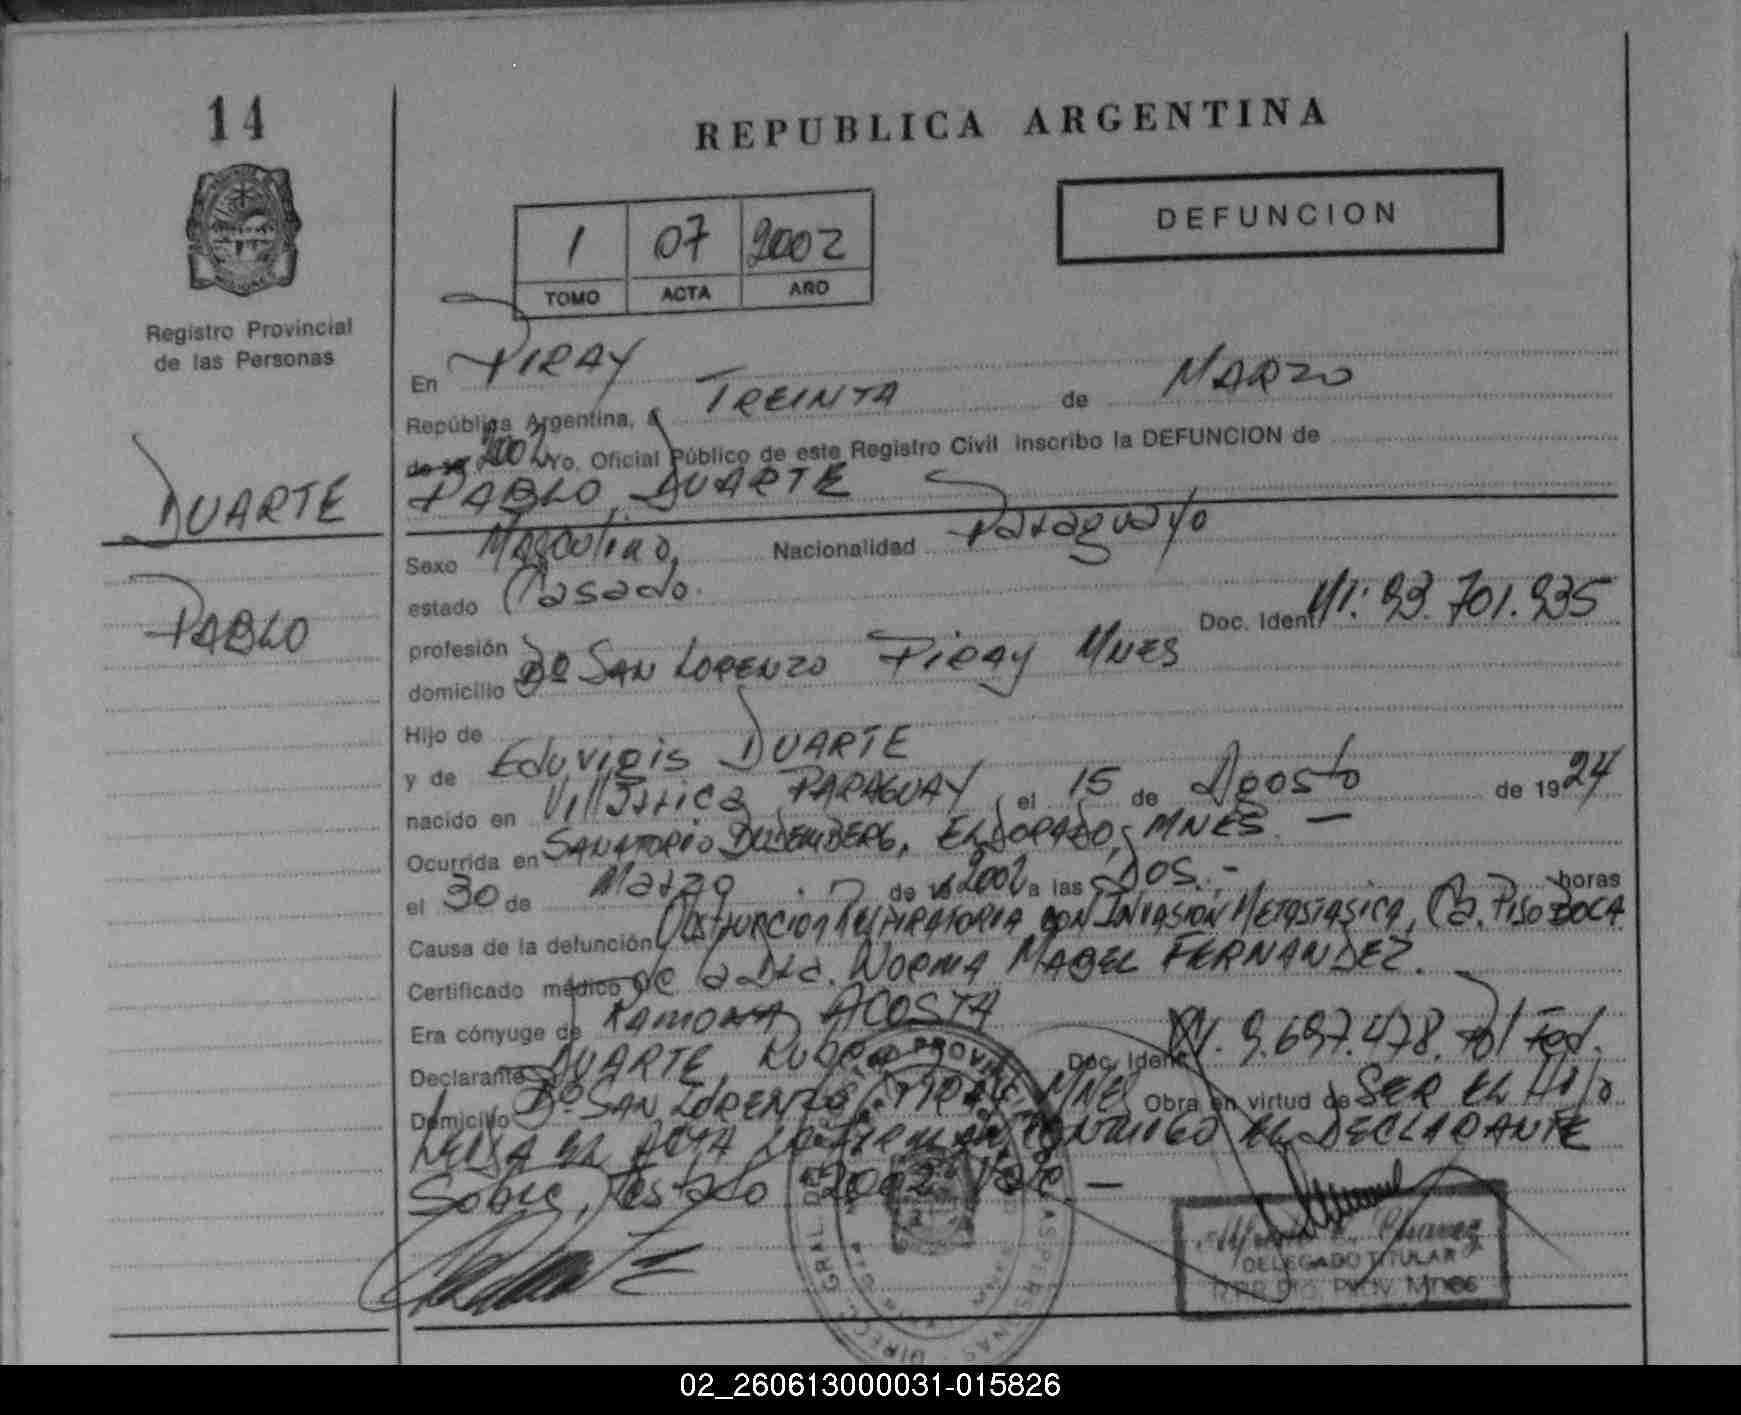 14
REPUBLICA ARGENTINA
DEFUNCION
1 07 2002
TOMO ACTA AÑO
Registro Provincial
de las Personas
DUARTE
PABLO
En PIRAY
República Argentina, a TREINTA de MARZO
de 19 2002 Yo, Oficial Público de este Registro Civil inscribo la DEFUNCION de
PABLO DUARTE
Sexo Masculino, Nacionalidad Paraguayo
estado Casado.
profesión Doc. Ident. 93.701.935
domicilio Bº SAN LORENZO PIRAY MNES
Hijo de
y de Eduvigis DUARTE
nacido en Villarrica PARAGUAY, el 15 de Agosto de 1924
Ocurrida en SANATORIO, ELDORADO, MNES. —
el 30 de Marzo de 19 2002 a las DOS.- horas
Causa de la defunción OBSTRUCCION RESPIRATORIA CON INVASION METASTASICA, Ca. PISO BOCA
Certificado médico de la Dra. NORMA MABEL FERNANDEZ.
Era cónyuge de RAMONA ACOSTA
Declarante DUARTE, Doc. Ident. 9.697.478. Pol Fed.
Domicilio Bº SAN LORENZO PIRAY MNES Obra en virtud de SER EL HIJO
LEIDA EL ACTA LA FIRMA CONMIGO EL DECLARANTE
Sobre, testado 2002 Vale. —
REGISTRO PROVINCIAL DE LAS PERSONAS
DIRECC. GRAL. DEL
Chavez
DELEGADO TITULAR
PROV. Mnes
02_260613000031-015826